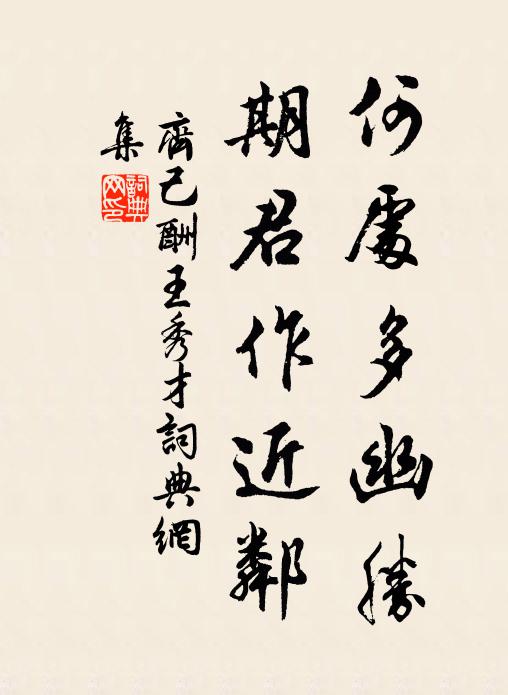 何處多幽勝
期君作近鄰
齊己酬王秀才詞典網
集
詞典
网印